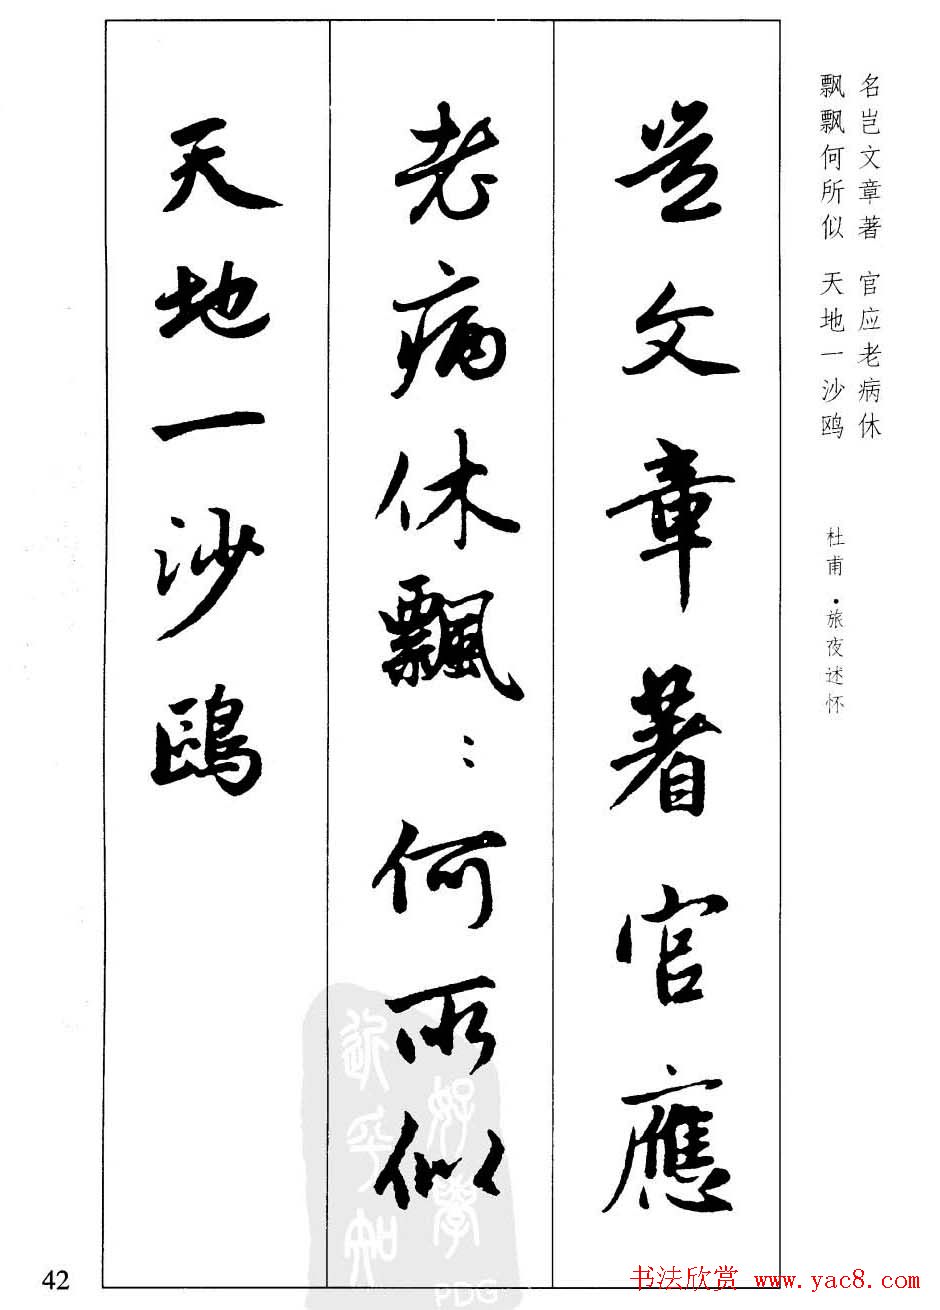 名岂文章著 官应老病休
飘飘何所似 天地一沙鸥
杜甫·旅夜述怀
岂文章著官應
老病休飄⺀何所似
天地一沙鷗
好學
近乎知
PDG
42
书法欣赏 www.yac8.com